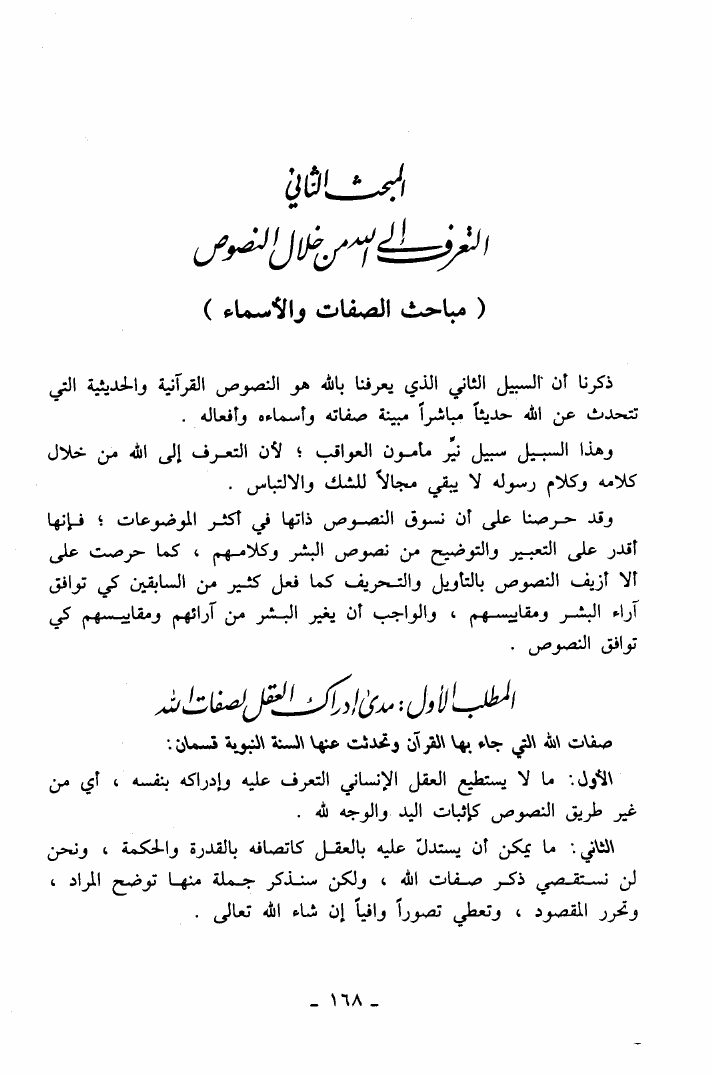 المبحث الثاني
التعرف إلى الله من خلال النصوص
( مباحث الصفات والأسماء )
ذكرنا أن السبيل الثاني الذي يعرفنا بالله هو النصوص القرآنية والحديثية التي
تتحدث عن الله حديثاً مباشراً مبينة صفاته وأسماءه وأفعاله .
وهذا السبيل سبيل نيِّر مأمون العواقب ؛ لأن التعرف إلى الله من خلال
كلامه وكلام رسوله لا يبقي مجالاً للشك والالتباس .
وقد حرصنا على أن نسوق النصوص ذاتها في أكثر الموضوعات ؛ فإنها
أقدر على التعبير والتوضيح من نصوص البشر وكلامهم ، كما حرصت على
ألا أزيف النصوص بالتأويل والتحريف كما فعل كثير من السابقين كي توافق
آراء البشر ومقاييسهم ، والواجب أن يغير البشر من آرائهم ومقاييسهم كي
توافق النصوص .
المطلب الأول : مدى إدراك العقل لصفات الله
صفات الله التي جاء بها القرآن وتحدثت عنها السنة النبوية قسمان :
الأول : ما لا يستطيع العقل الإنساني التعرف عليه وإدراكه بنفسه ، أي من
غير طريق النصوص كإثبات اليد والوجه لله .
الثاني : ما يمكن أن يستدلّ عليه بالعقل كاتصافه بالقدرة والحكمة ، ونحن
لن نستقصي ذكر صفات الله ، ولكن سنذكر جملة منها توضح المراد ،
وتحرر المقصود ، وتعطي تصوراً وافياً إن شاء الله تعالى .
- ١٦٨ -